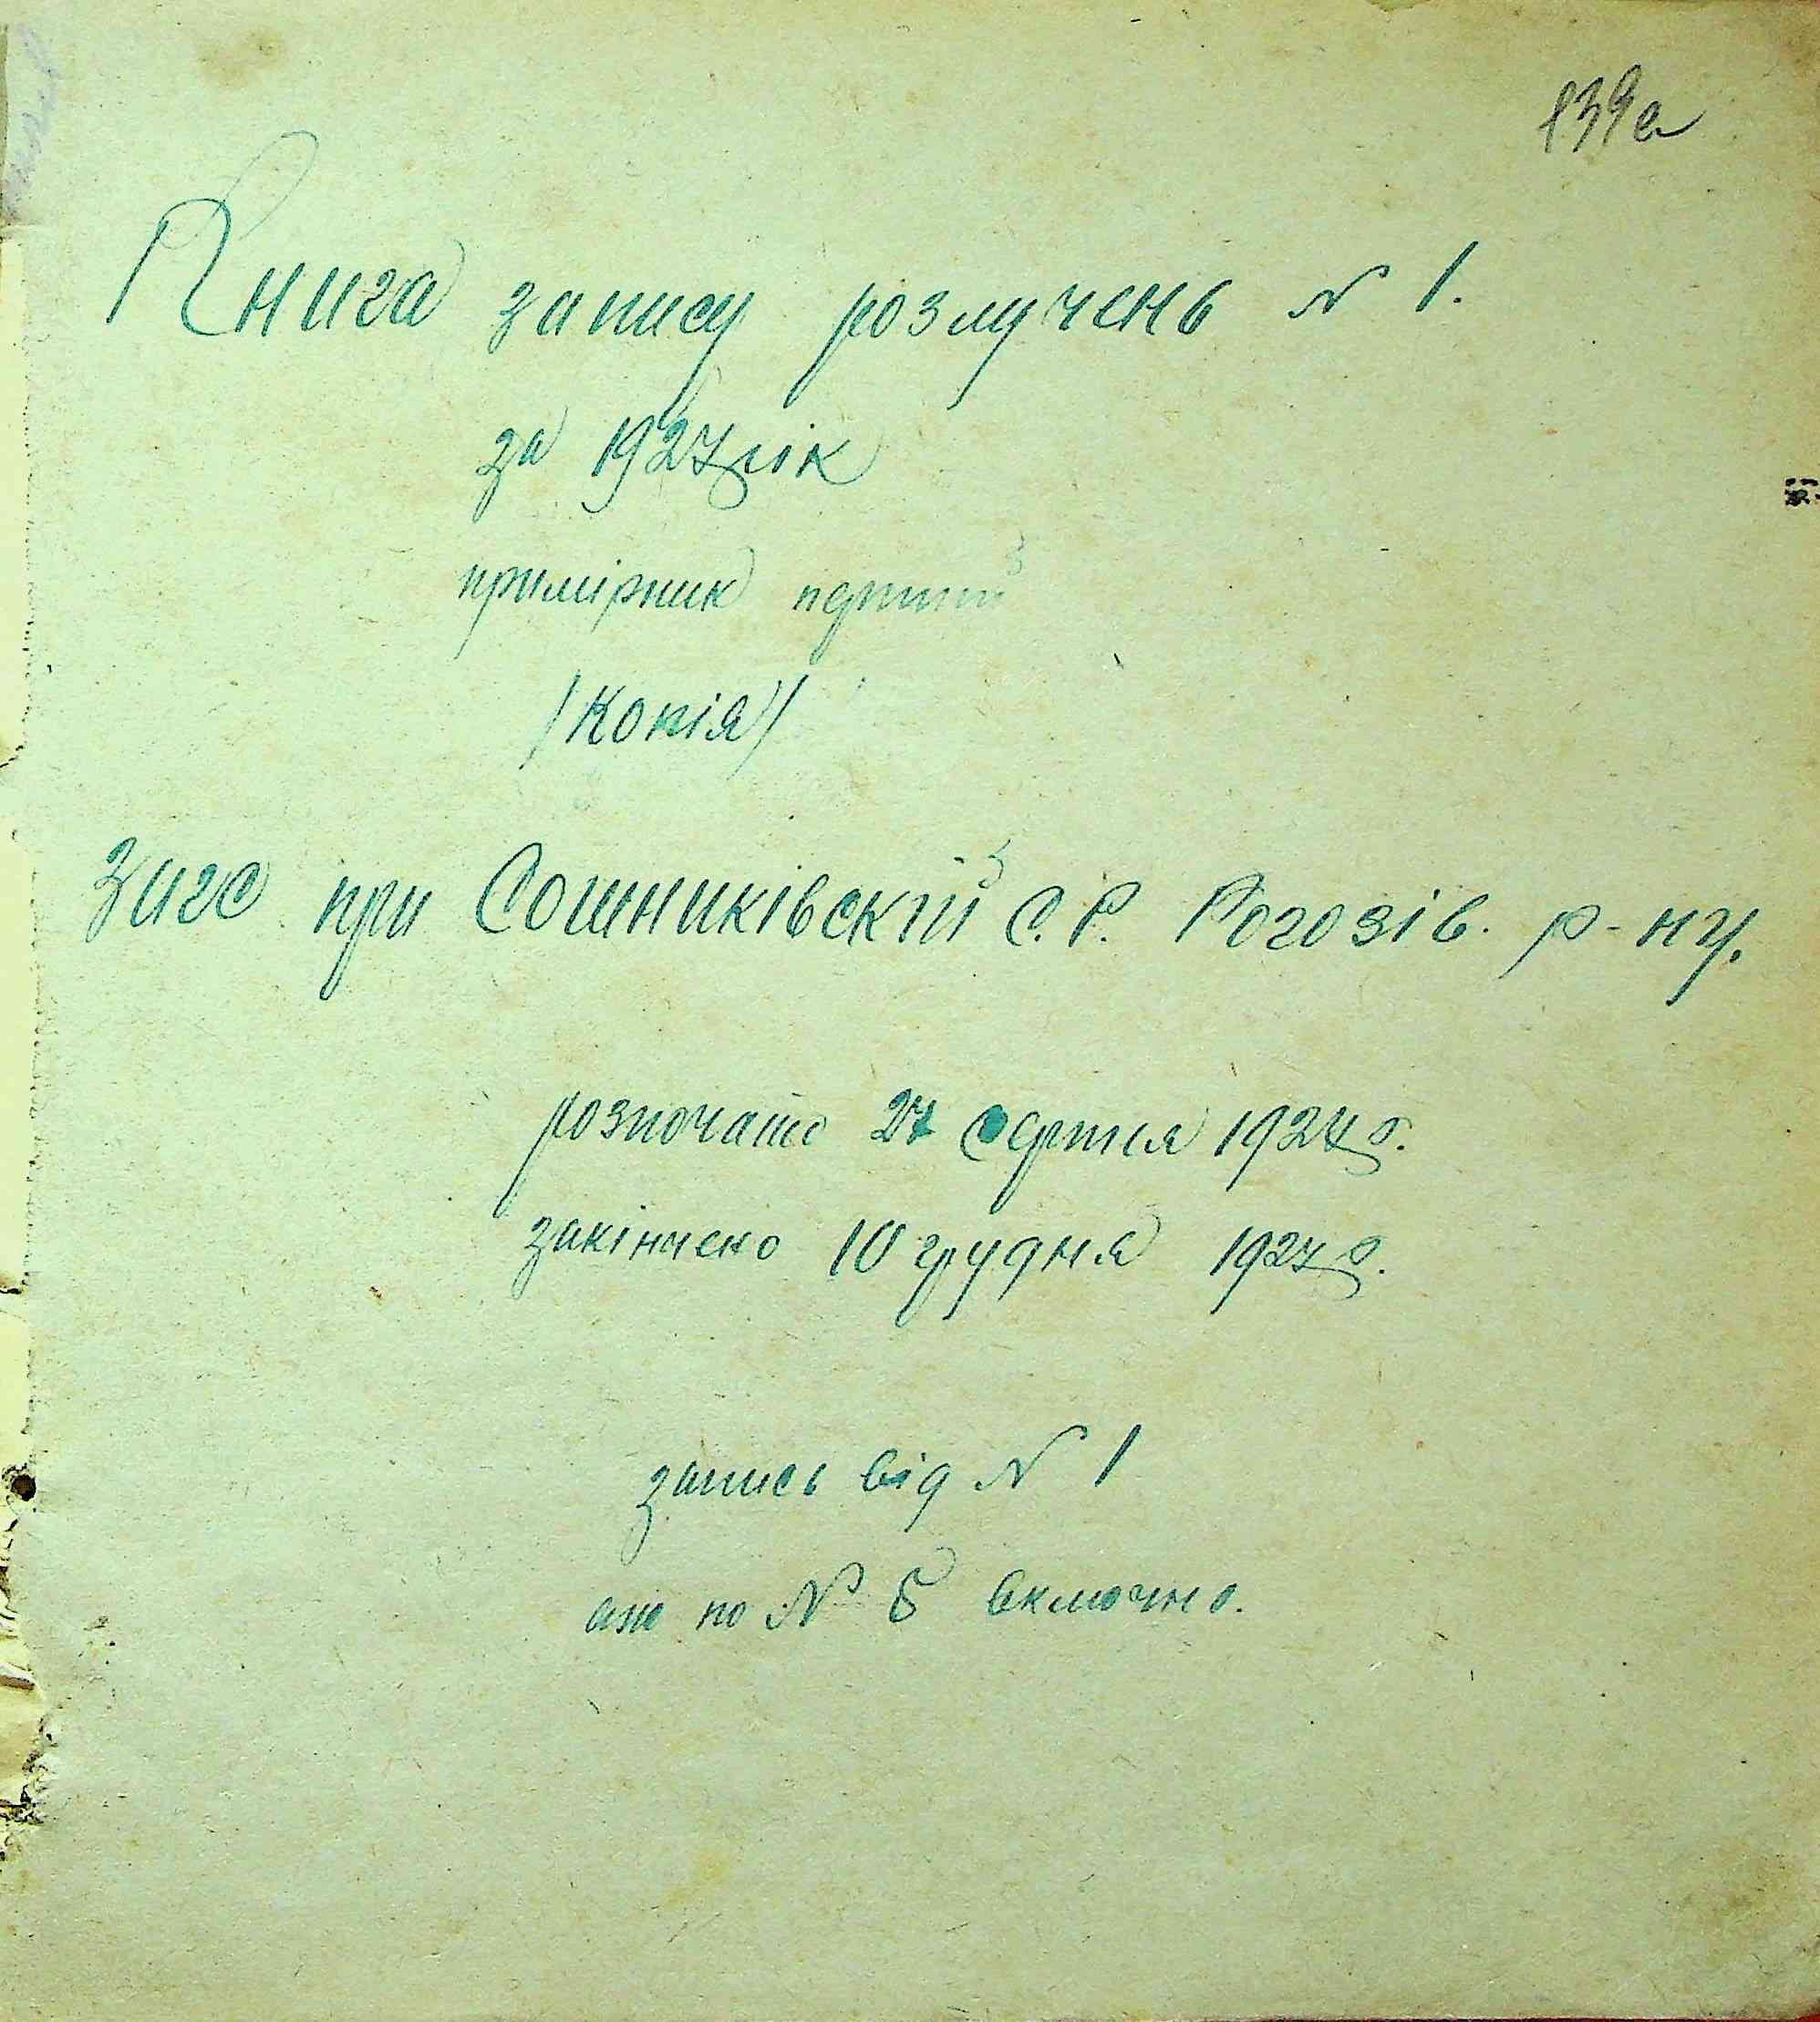 139а
Книга запису розлучень N 1.
за 1927 рік
примірник перший
/Копія/
Загс при Сошниківській С.Р. Рогозів. р-ну.
розпочато 27 серпня 1927 р.
закінчено 10 грудня 1927 р.
запись від N 1
аж по N 5 включно.